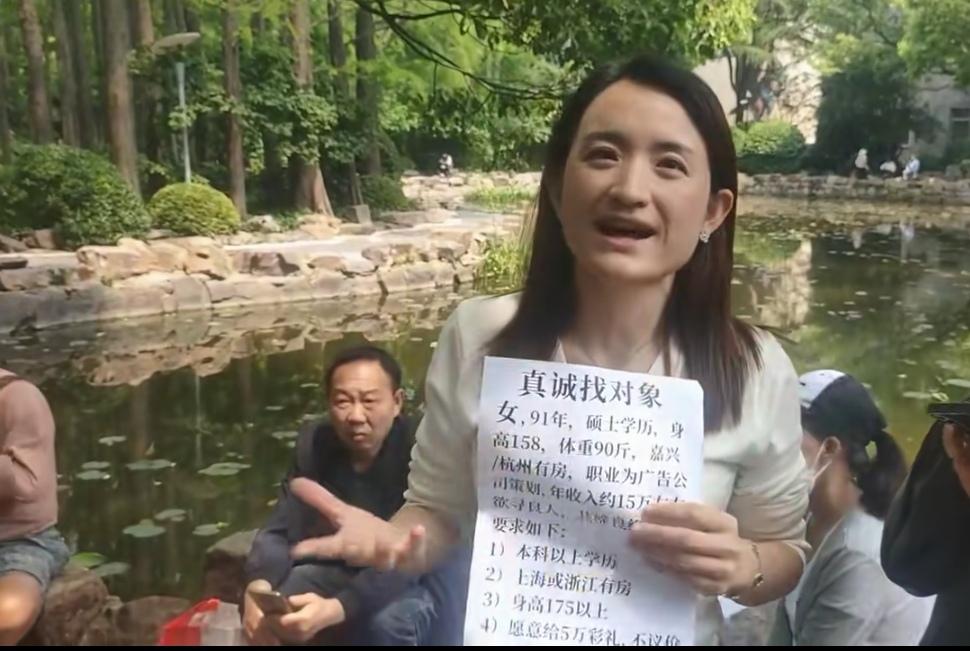 真诚找对象
女，91年，硕士学历，身
高158，体重90斤，嘉兴
/杭州有房，职业为广告公
司策划，年收入约15万左右
欲寻良人，共
要求如下：
1）本科以上学历
2）上海或浙江有房
3）身高175以上
4）愿意给5万彩礼，不议价